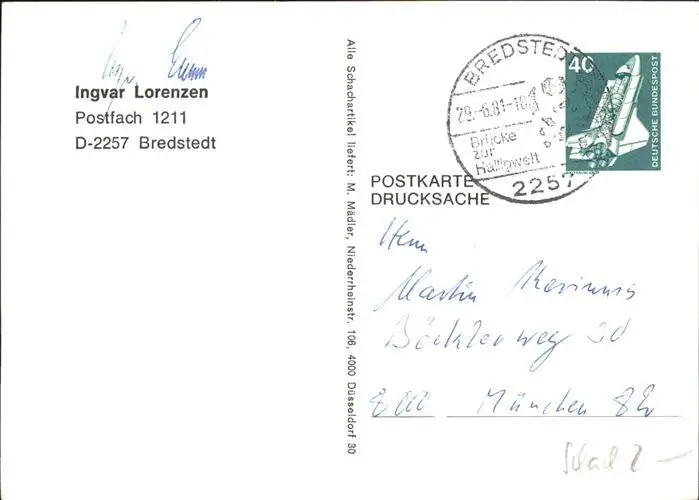 Ingvar Lorenzen
Postfach 1211
D-2257 Bredstedt
Alle Schachartikel liefert: M. Mädler, Niederrheinstr. 106, 4000 Düsseldorf 30
BREDSTEDT
29.-6.81-18
Brücke
zur
Halligwelt
2257
40
DEUTSCHE BUNDESPOST
POSTKARTE
DRUCKSACHE
Herrn
Martin
Böcklerweg 30
8000 München 82
Schach